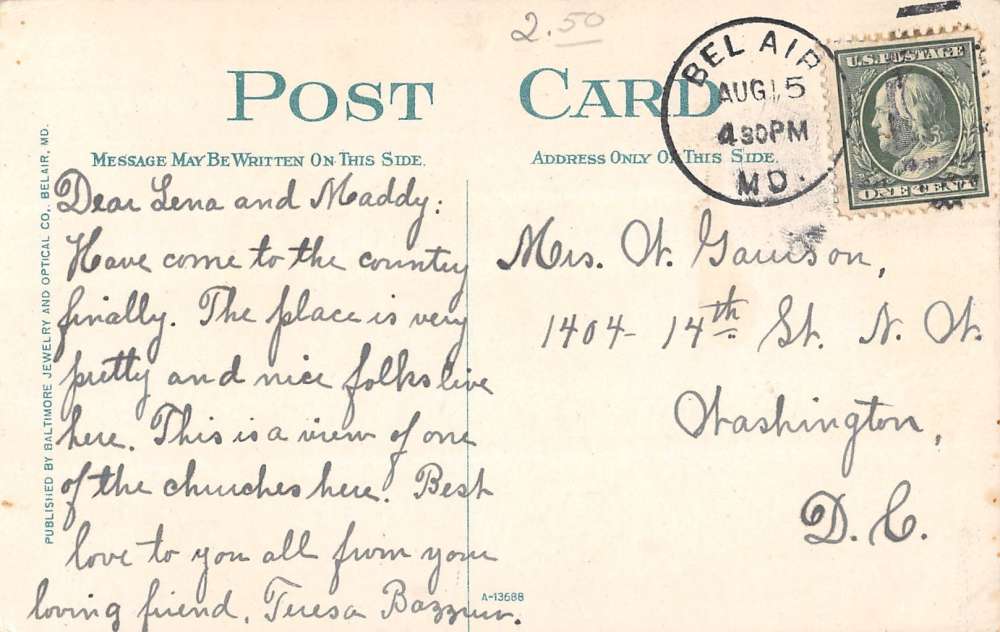 2.50
POST CARD
BEL AIR
AUG 15
4 30PM
MD.
U.S. POSTAGE
ONE CENT
MESSAGE MAY BE WRITTEN ON THIS SIDE.
ADDRESS ONLY ON THIS SIDE.
PUBLISHED BY BALTIMORE JEWELRY AND OPTICAL CO., BELAIR, MD.
Dear Lena and Maddy:
Have come to the country
finally. The place is very
pretty and nice folks live
here. This is a view of one
of the churches here. Best
love to you all from your
loving friend, Teresa
Mrs. W. Garrison,
1404- 14th St. N. W.
Washington,
D. C.
A-13688